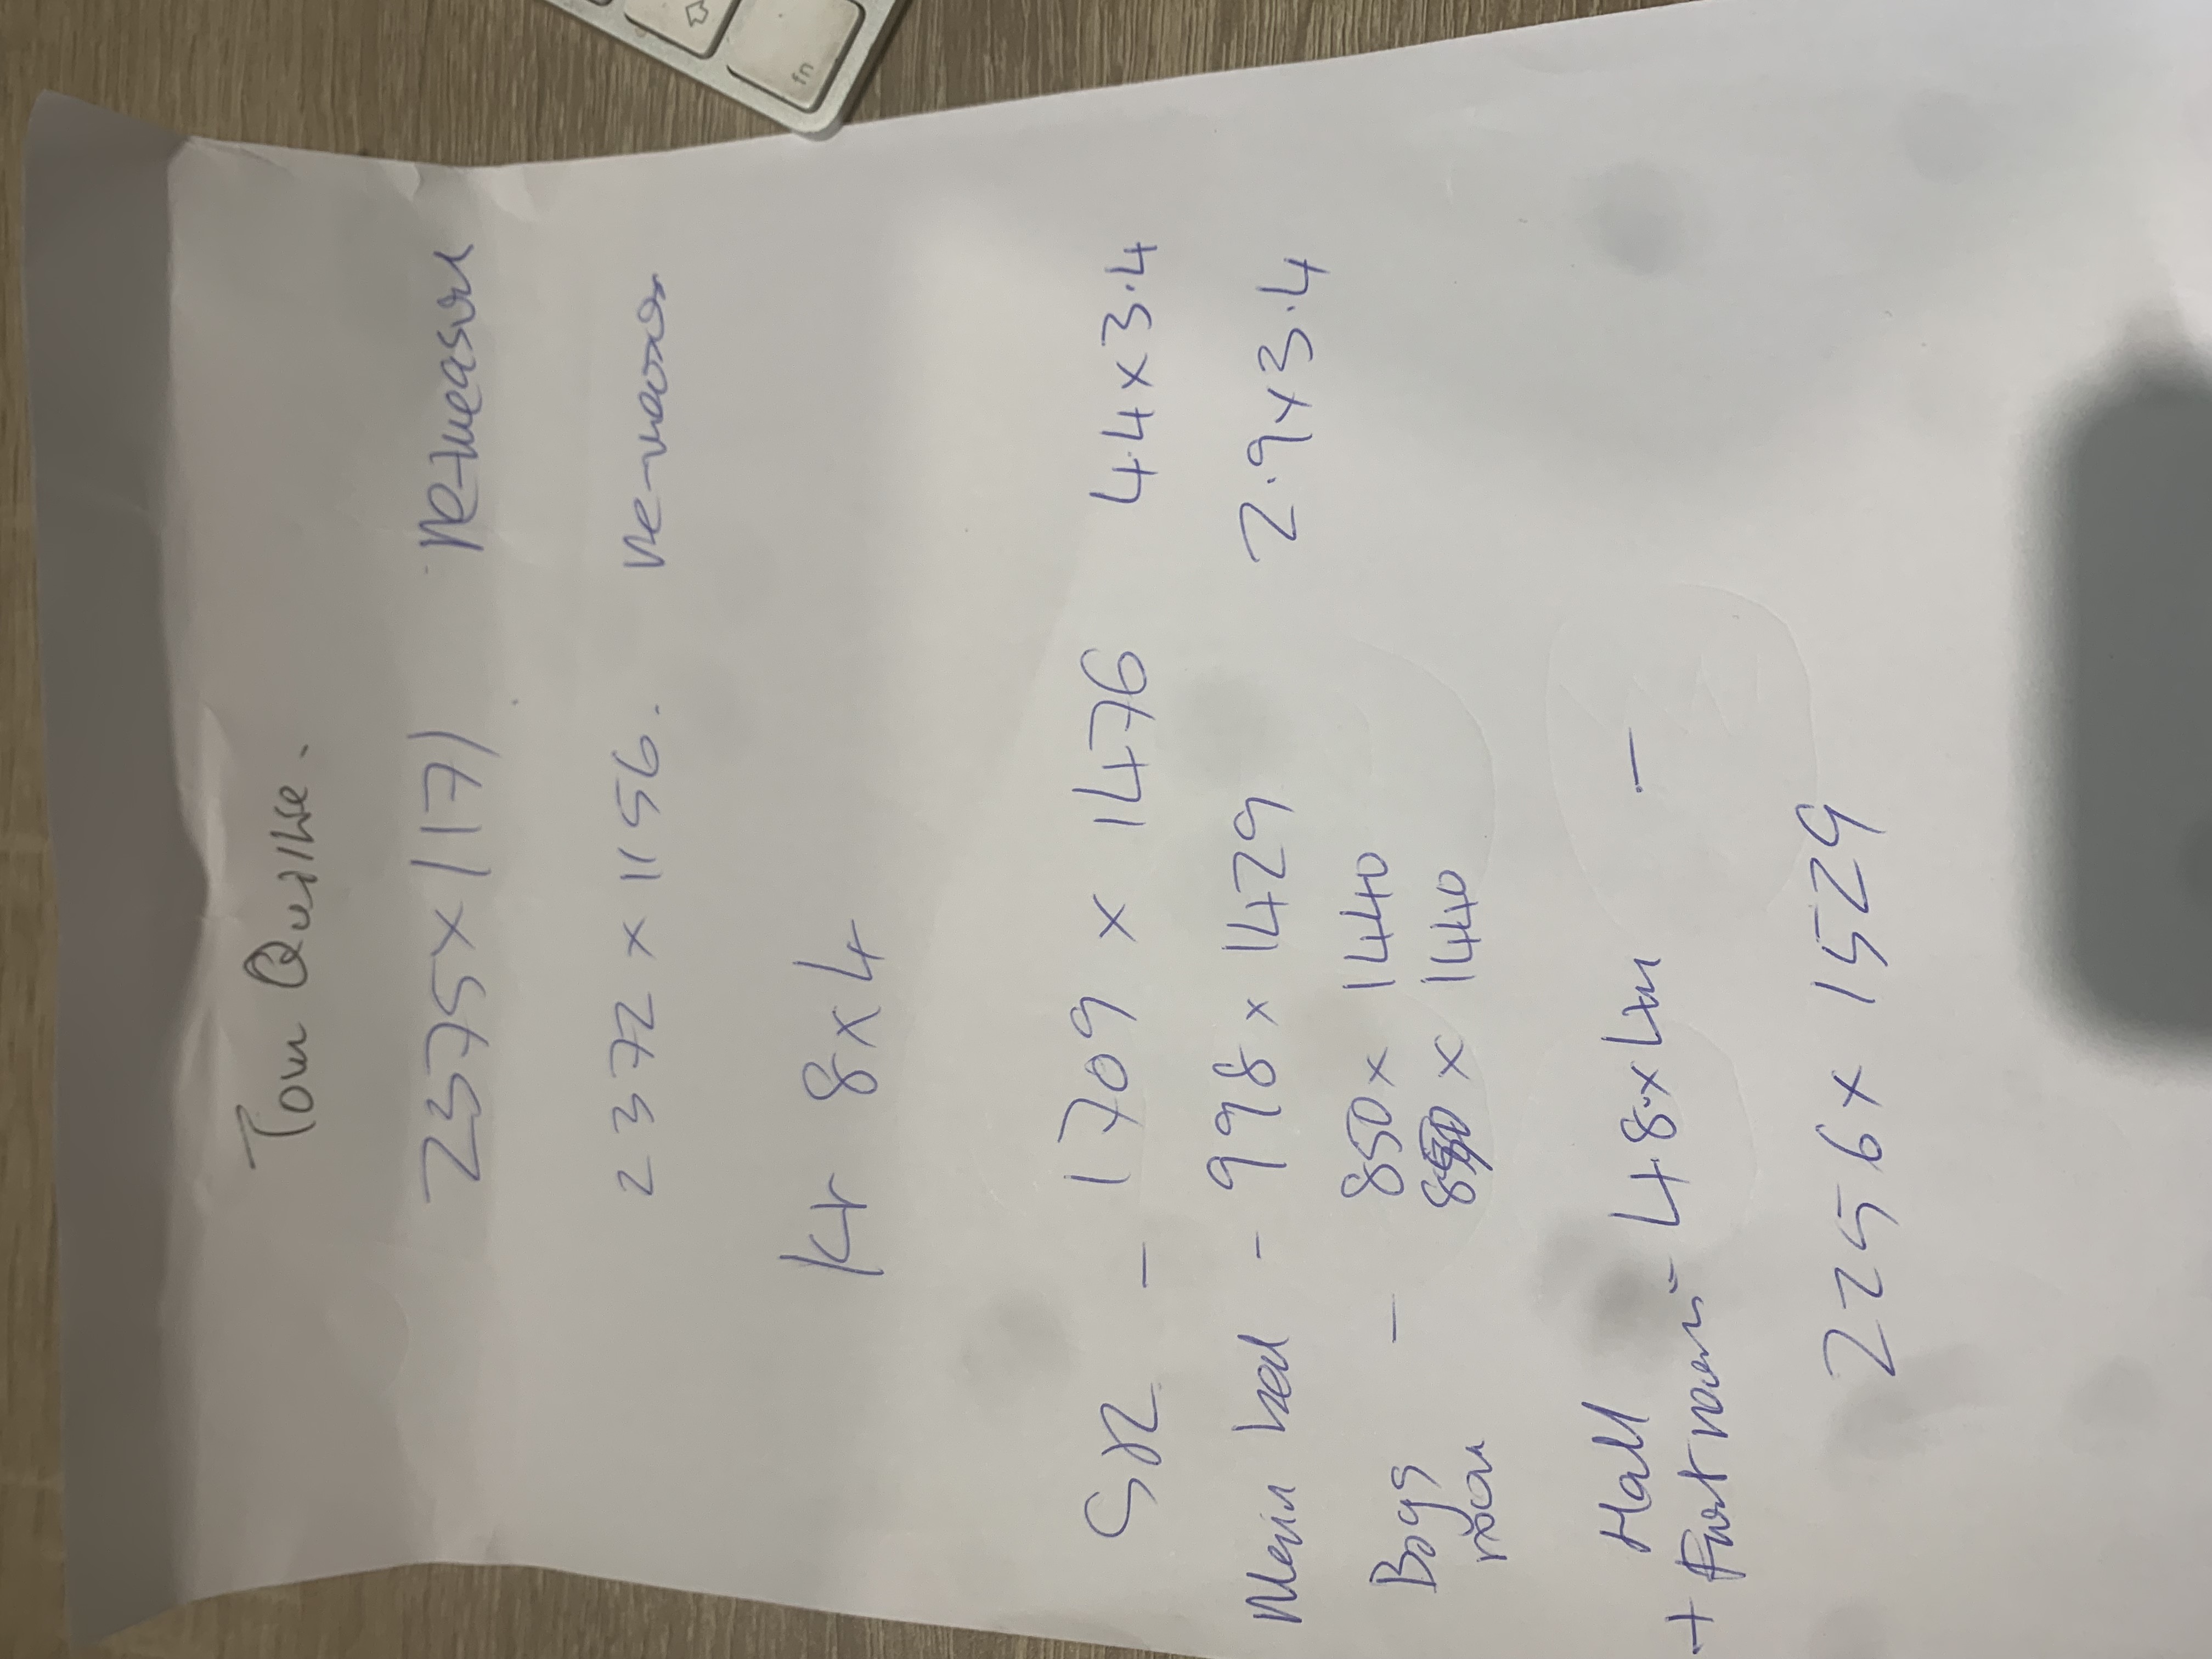 Tom Quilke.
2375 x 1171 Re-measure
2372 x 1156. Re-
Kr 8x4
SR - 1709 x 1476 4.4x3.4
Main bed - 998 x 1429 2.9x3.4
Boys - 850 x 1440
room 850 x 1440
Hall - 4.8 x 4m -
+ Front room
2256 x 1529
fn